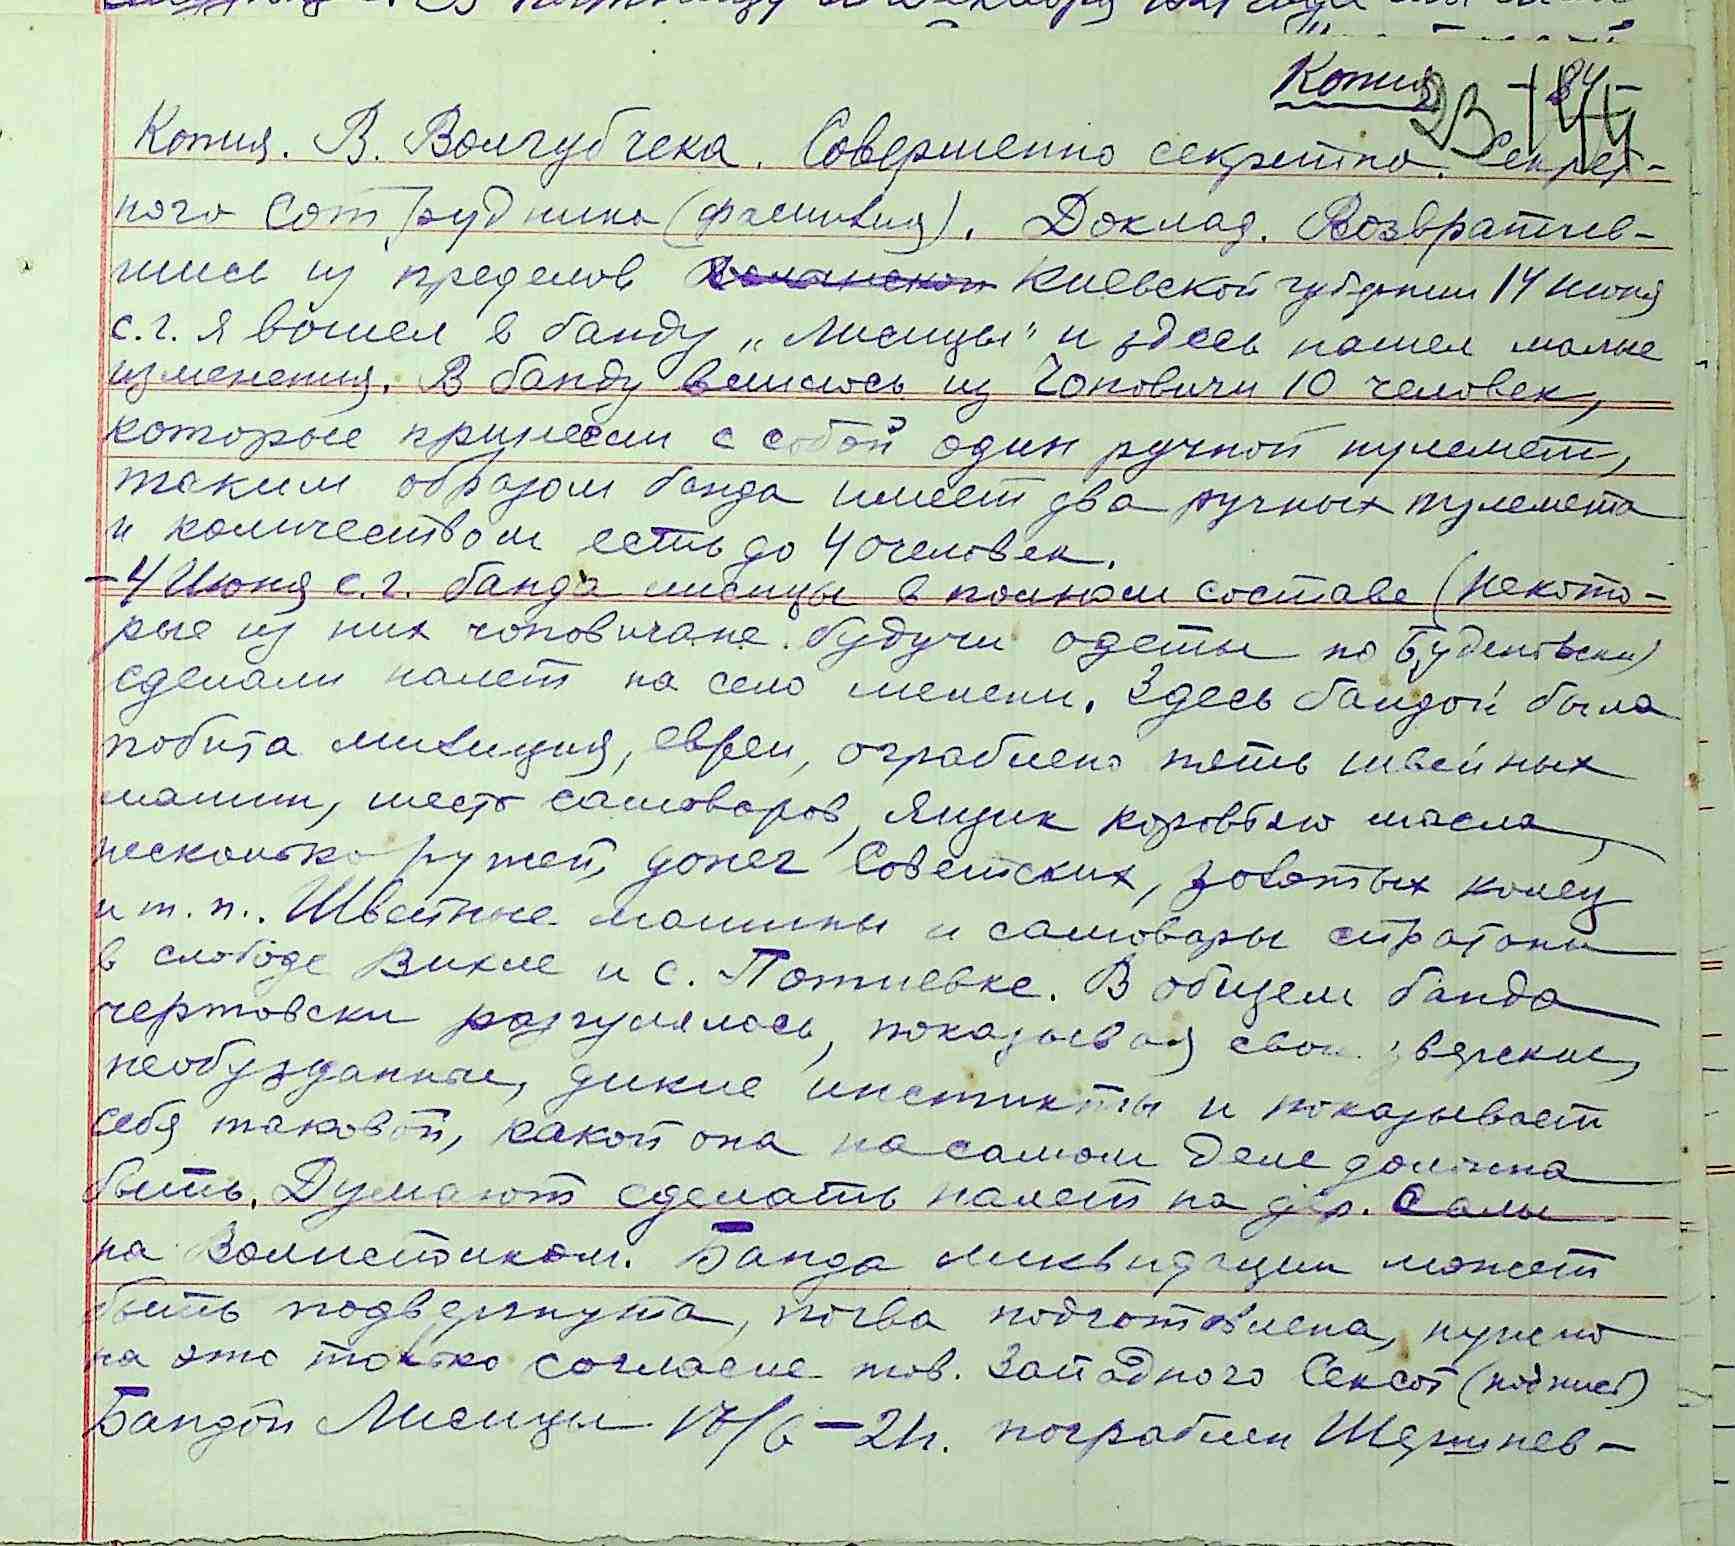 Копия - 84 -
Копия. В. Волгубчека. Совершенно секретно. Секрет-
ного Сотрудника (фамилия). Доклад. Возвратив-
шись из пределов Киевской губернии 14 июня
с.г. я вошел в банду „Лисицы" и здесь нашел малые
изменения. В банду влилось из Чоповичи 10 человек,
которые принесли с собой один ручной пулемет,
таким образом банда имеет два ручных пулемета
и количеством есть до 40 человек.
- 4 Июня с.г. банда лисицы в полном составе (некото-
рые из них чоповичане будучи одеты по Буденовски)
сделали налет на село мелени. Здесь бандой была
побита милиция, евреи, ограблено пять швейных
машин, шесть самоваров, ящик коровьего масла,
несколько ружей, денег Советских, золотых колец
и т.п.. Швейные машины и самовары спрятаны
в слободе Вихле и с. Потиевке. В общем банда
чертовски разгулялась, показывая свои зверские,
необузданные, дикие инстикты и показывает
себя таковой, какой она на самом деле должна
быть. Думают сделать налет на дер. Салы
на Волисполком. Банда ликвидации может
быть подвергнута, почва подготовлена, нужно
на это только согласие тов. Западного Сексот (подпись)
Бандой Лисицы 17/6 - 21г. пограблен